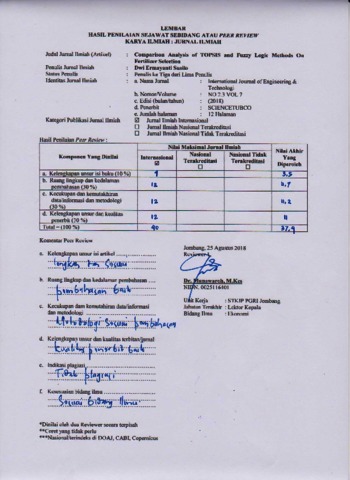 LEMBAR
HASIL PENILAIAN SEJAWAT SEBIDANG ATAU PEER REVIEW
KARYA ILMIAH : JURNAL ILMIAH
Judul Jurnal Ilmiah (Artikel) : Comparison Analysis of TOPSIS and Fuzzy Logic Methods On
Fertilizer Selection
Penulis Jurnal Ilmiah : Dwi Ernayanti Susilo
Status Penulis : Penulis ke Tiga dari Lima Penulis
Identitas Jurnal Ilmiah : a. Nama Jurnal : International Journal of Engineering &
Technologi
b. Nomor/Volume : NO 2.3 VOL 7
c. Edisi (bulan/tahun) : (2018)
d. Penerbit : SCIENCETUBCO
e. Jumlah halaman : 12 Halaman
Kategori Publikasi Jurnal Ilmiah : ☑ Jurnal Ilmiah Internasional
☐ Jurnal Ilmiah Nasional Terakreditasi
☐ Jurnal Ilmiah Nasional Tidak Terakreditasi
Hasil Penilaian Peer Review :
Komponen Yang Dinilai
Nilai Maksimal Jurnal Ilmiah
Internasional ☑
Nasional Terakreditasi ☐
Nasional Tidak Terakreditasi ☐
Nilai Akhir Yang Diperoleh
a. Kelengkapan unsur isi buku (10 %)
b. Ruang lingkup dan kedalaman pembahasan (30 %) 12
c. Kecukupan dan kemutakhiran data/informasi dan metodologi (30 %) 12
d. Kelengkapan unsur dan kualitas penerbit (30 %) 12 11
Total = (100 %) 40 37,9
Komentar Peer Review
Jombang, 25 Agustus 2018
Reviewer
a. Kelengkapan unsur isi artikel
lengkap dan sesuai
b. Ruang lingkup dan kedalaman pembahasan
pembahasan baik
Dr. Munawaroh, M.Kes
NIDN. 0025116401
Unit Kerja : STKIP PGRI Jombang
Jabatan Terakhir : Lektor Kepala
Bidang Ilmu : Ekonomi
c. Kecukupan dam kemutahiran data/informasi
dan metodologi
Metodologi sesuai pembahasan
d. Kelengkapan unsur dan kualitas terbitan/jurnal
kualitas penerbit baik
e. Indikasi plagiasi
Tidak plagiasi
f. Kesesuaian bidang ilmu
Sesuai bidang ilmu
*Dinilai oleh dua Reviewer secara terpisah
**Coret yang tidak perlu
***Nasional/terindeks di DOAJ, CABI, Copernicus